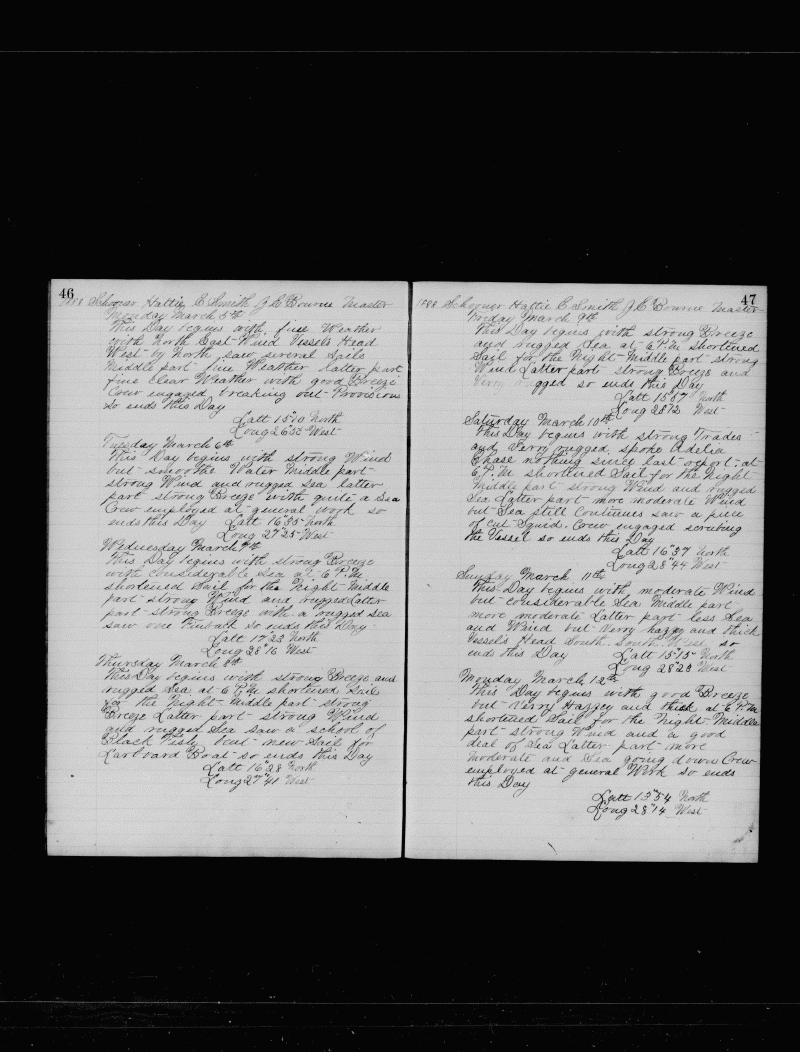 46
1888 Schooner Hattie E Smith J E Bourne Master
Monday March 5th
This Day begins with fine Weather
with North East Wind Vessels Head
West by North saw several Sails
Middle part fine Weather latter part
fine clear Weather with good Breeze
Crew engaged breaking out Provisions
so ends this Day
Latt 15"10 North
Long 26"55 West
Tuesday March 6th
This Day begins with strong Wind
but smoothe Water Middle part
strong Wind and rugged Sea latter
part strong Breeze with quite a Sea
Crew employed at general work so
ends this Day Latt 16"35 North
Long 27"25 West
Wednesday March 7th
This Day begins with strong Breeze
with considerable Sea at 6 P.M.
shortened Sail for the Night Middle
part strong Wind and rugged Latter
part strong Breeze with a rugged sea
saw one Finback so ends this Day
Latt 17"23 North
Long 28"16 West
Thursday March 8th
This Day begins with strong Breeze and
rugged Sea at 6 P.M shortened Sail
for the Night Middle part strong
Breeze Latter part strong Wind
and rugged Sea saw a school of
Black Fish bent new Sail for
Larboard Boat so ends this Day
Latt 16"28 North
Long 27"41 West
47
1888 Schooner Hattie E Smith J E Bourne Master
Friday March 9th
This Day begins with strong Breeze
and rugged Sea at 6 P.M shortened
Sail for the Night Middle part strong
Wind Latter part strong Breeze and
Verry rugged so ends this Day
Latt 15"57 North
Long 28"13 West
Saturday March 10th
This Day begins with strong Trades
and Verry rugged, spoke Adelia
Chase nothing since last report, at
6 P.M shortened Sail for the Night
Middle part strong Wind and rugged
Sea Latter part more moderate Wind
but Sea still Continues saw a piece
of cut Squid. Crew engaged scrubing
the Vessel so ends this Day
Latt 16"37 North
Long 28"44 West
Sunday March 11th
This Day begins with moderate Wind
but considerable Sea Middle part
more moderate Latter part less Sea
and Wind but Verry hazey and thick
Vessels Head South. South. West so
ends this Day Latt 15"15 North
Long 28"23 West
Monday March 12th
This Day begins with good Breeze
but Verry Hazzey and thick at 6 P.M
shortened Sail for the Night Middle
part strong Wind and a good
deal of Sea Latter part more
moderate and Sea going down Crew
employed at general Work so ends
this Day
Latt 13"54 North
Long 28"14 West